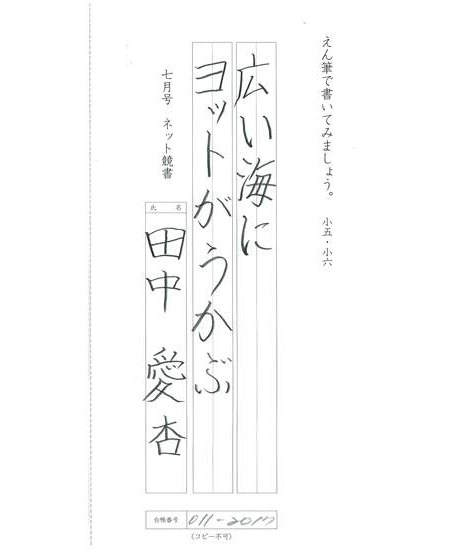 えん筆で書いてみましょう。 小五・小六
広い海に
ヨットがうかぶ
七月号 ネット競書
氏名
田中 愛杏
台帳番号 011-2017
(コピー不可)